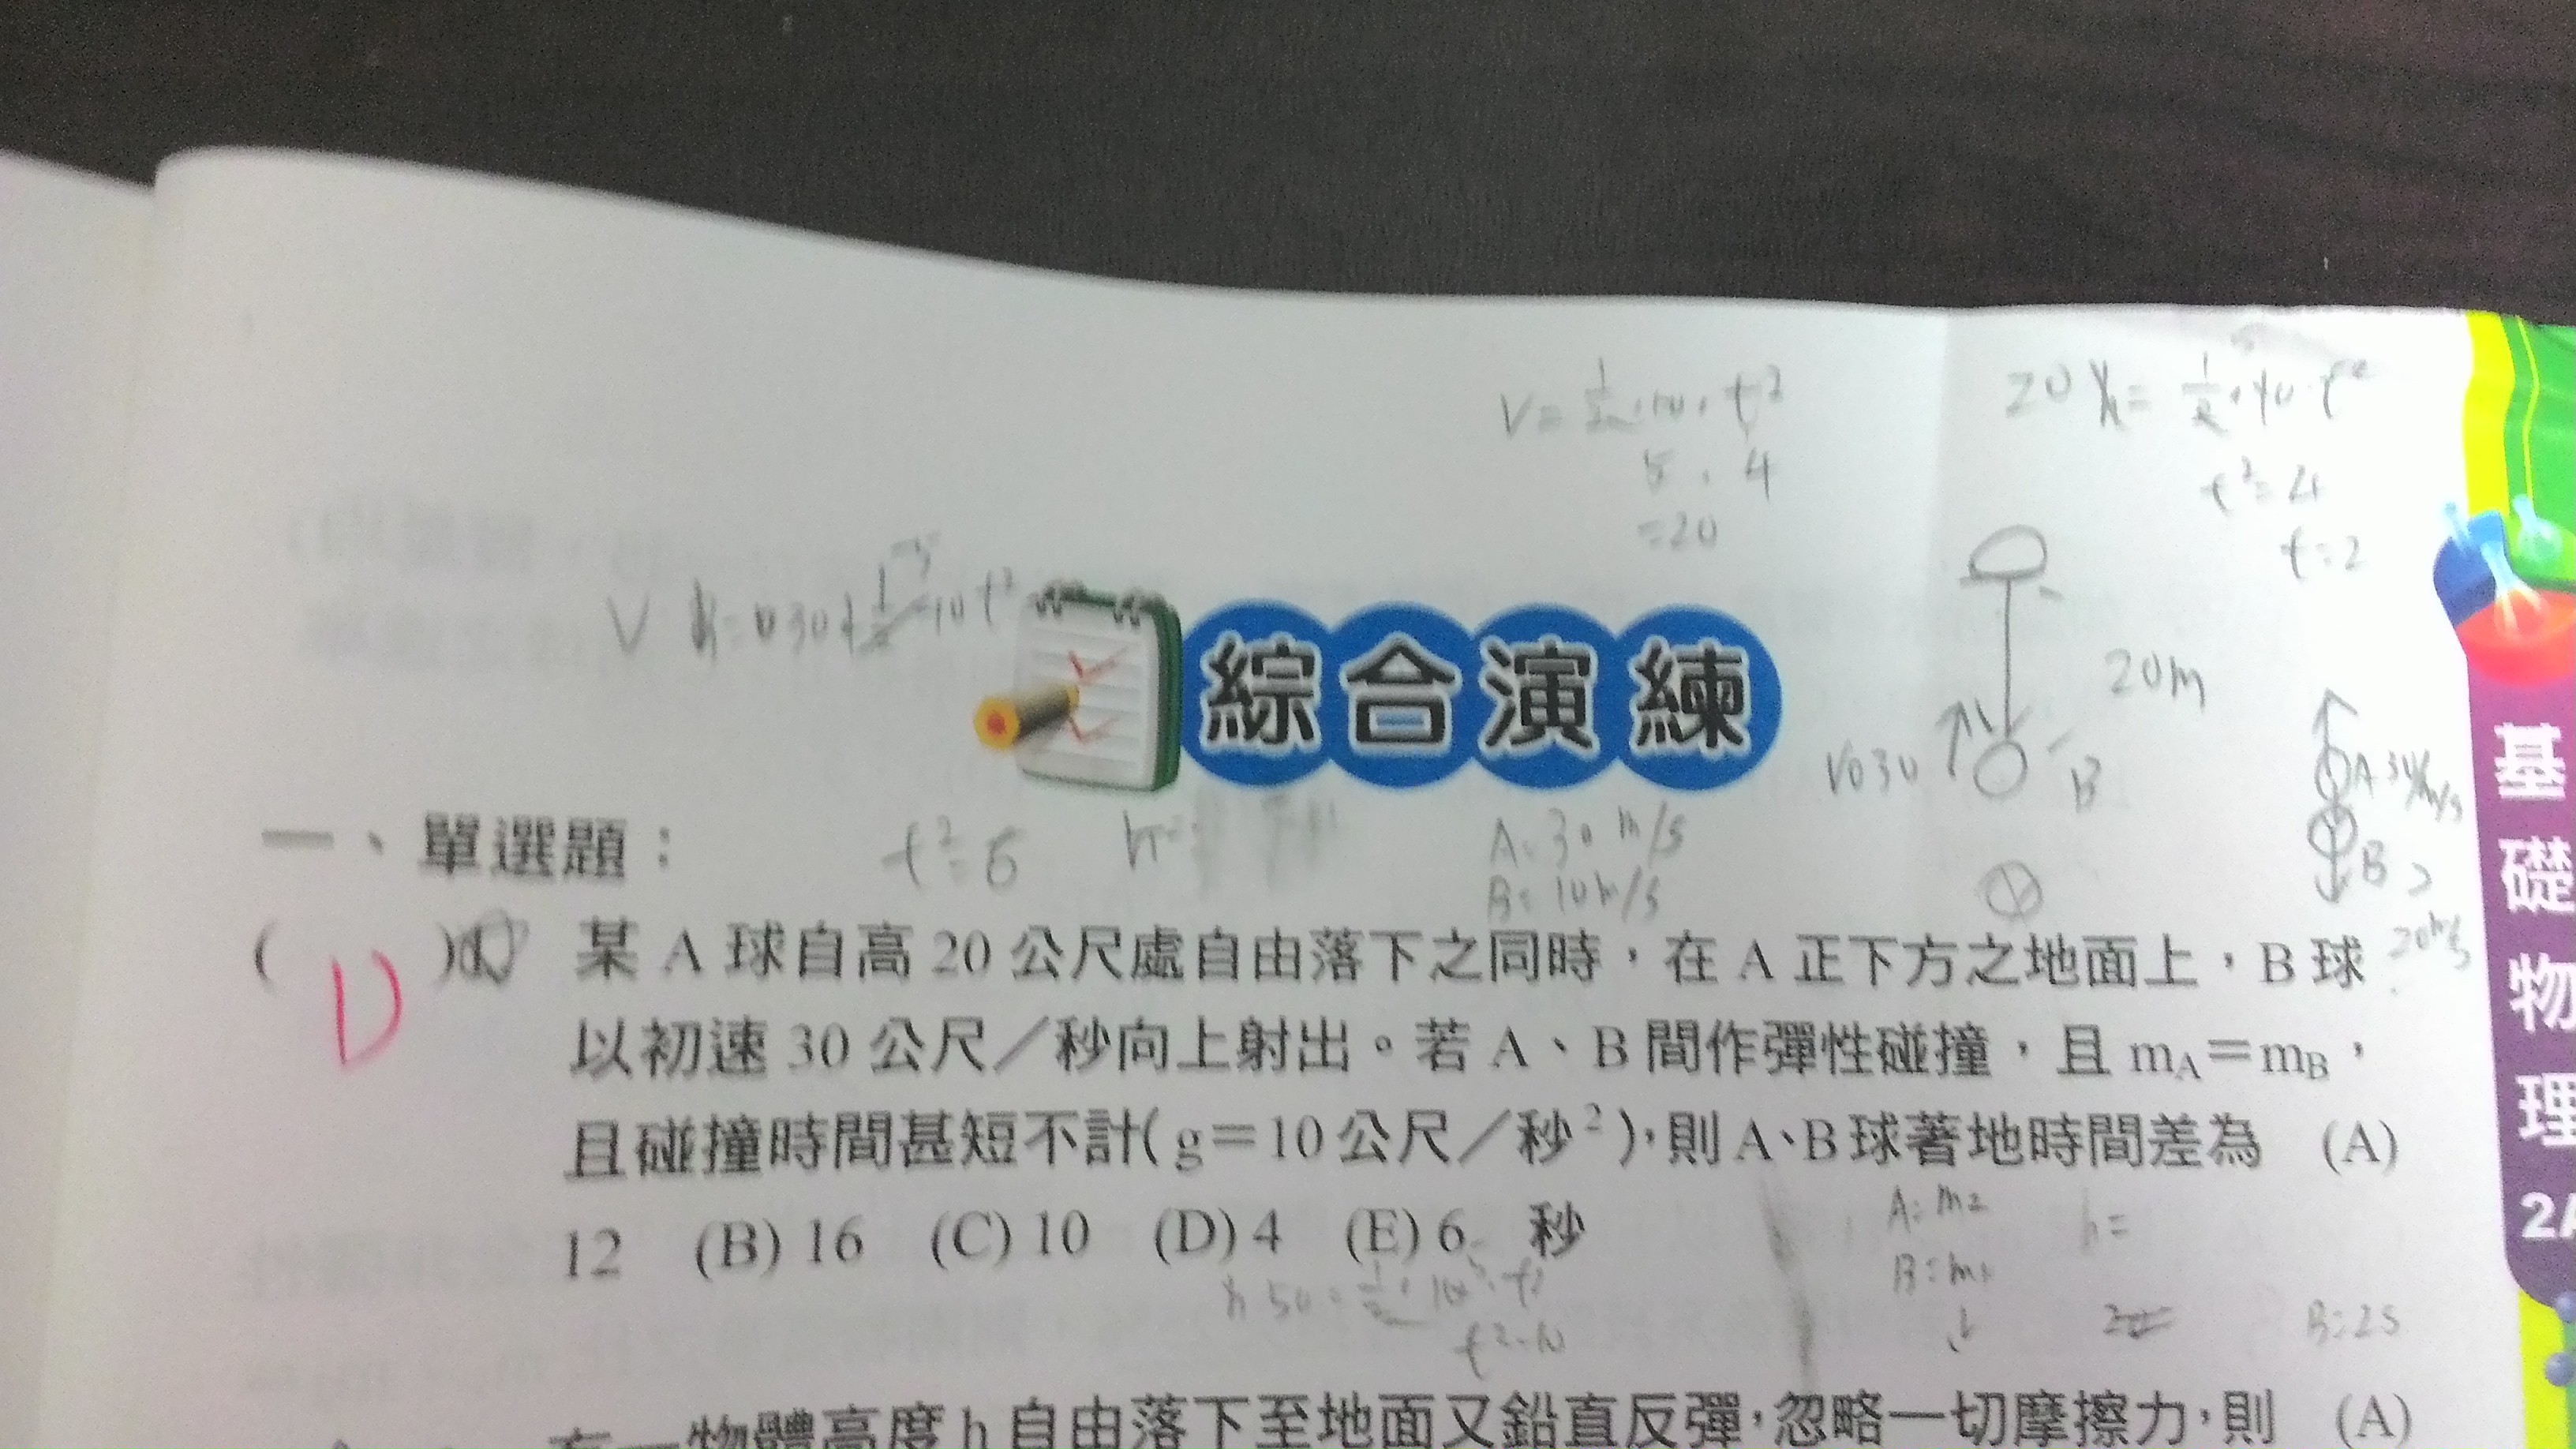 V = 1/2 · 10 · t²
5 · 4
= 20
20 h = 1/2 · 10 · t²
t² = 4
t = 2
20m
V0 30
B
A 30 m/s
B
20 m/s
綜合演練
t² = 6
h =
A = 30 m/s
B = 10 m/s
一、單選題：
( D )1. 某 A 球自高 20 公尺處自由落下之同時，在 A 正下方之地面上，B 球
以初速 30 公尺／秒向上射出。若 A、B 間作彈性碰撞，且 mA＝mB，
且碰撞時間甚短不計( g＝10 公尺／秒² )，則 A、B 球著地時間差為 (A)
12 (B) 16 (C) 10 (D) 4 (E) 6 秒
h 50 = 1/2 · 10 · t²
t² = 10
h =
有一物體高度 h 自由落下至地面又鉛直反彈，忽略一切摩擦力，則 (A)
基礎物理
2A